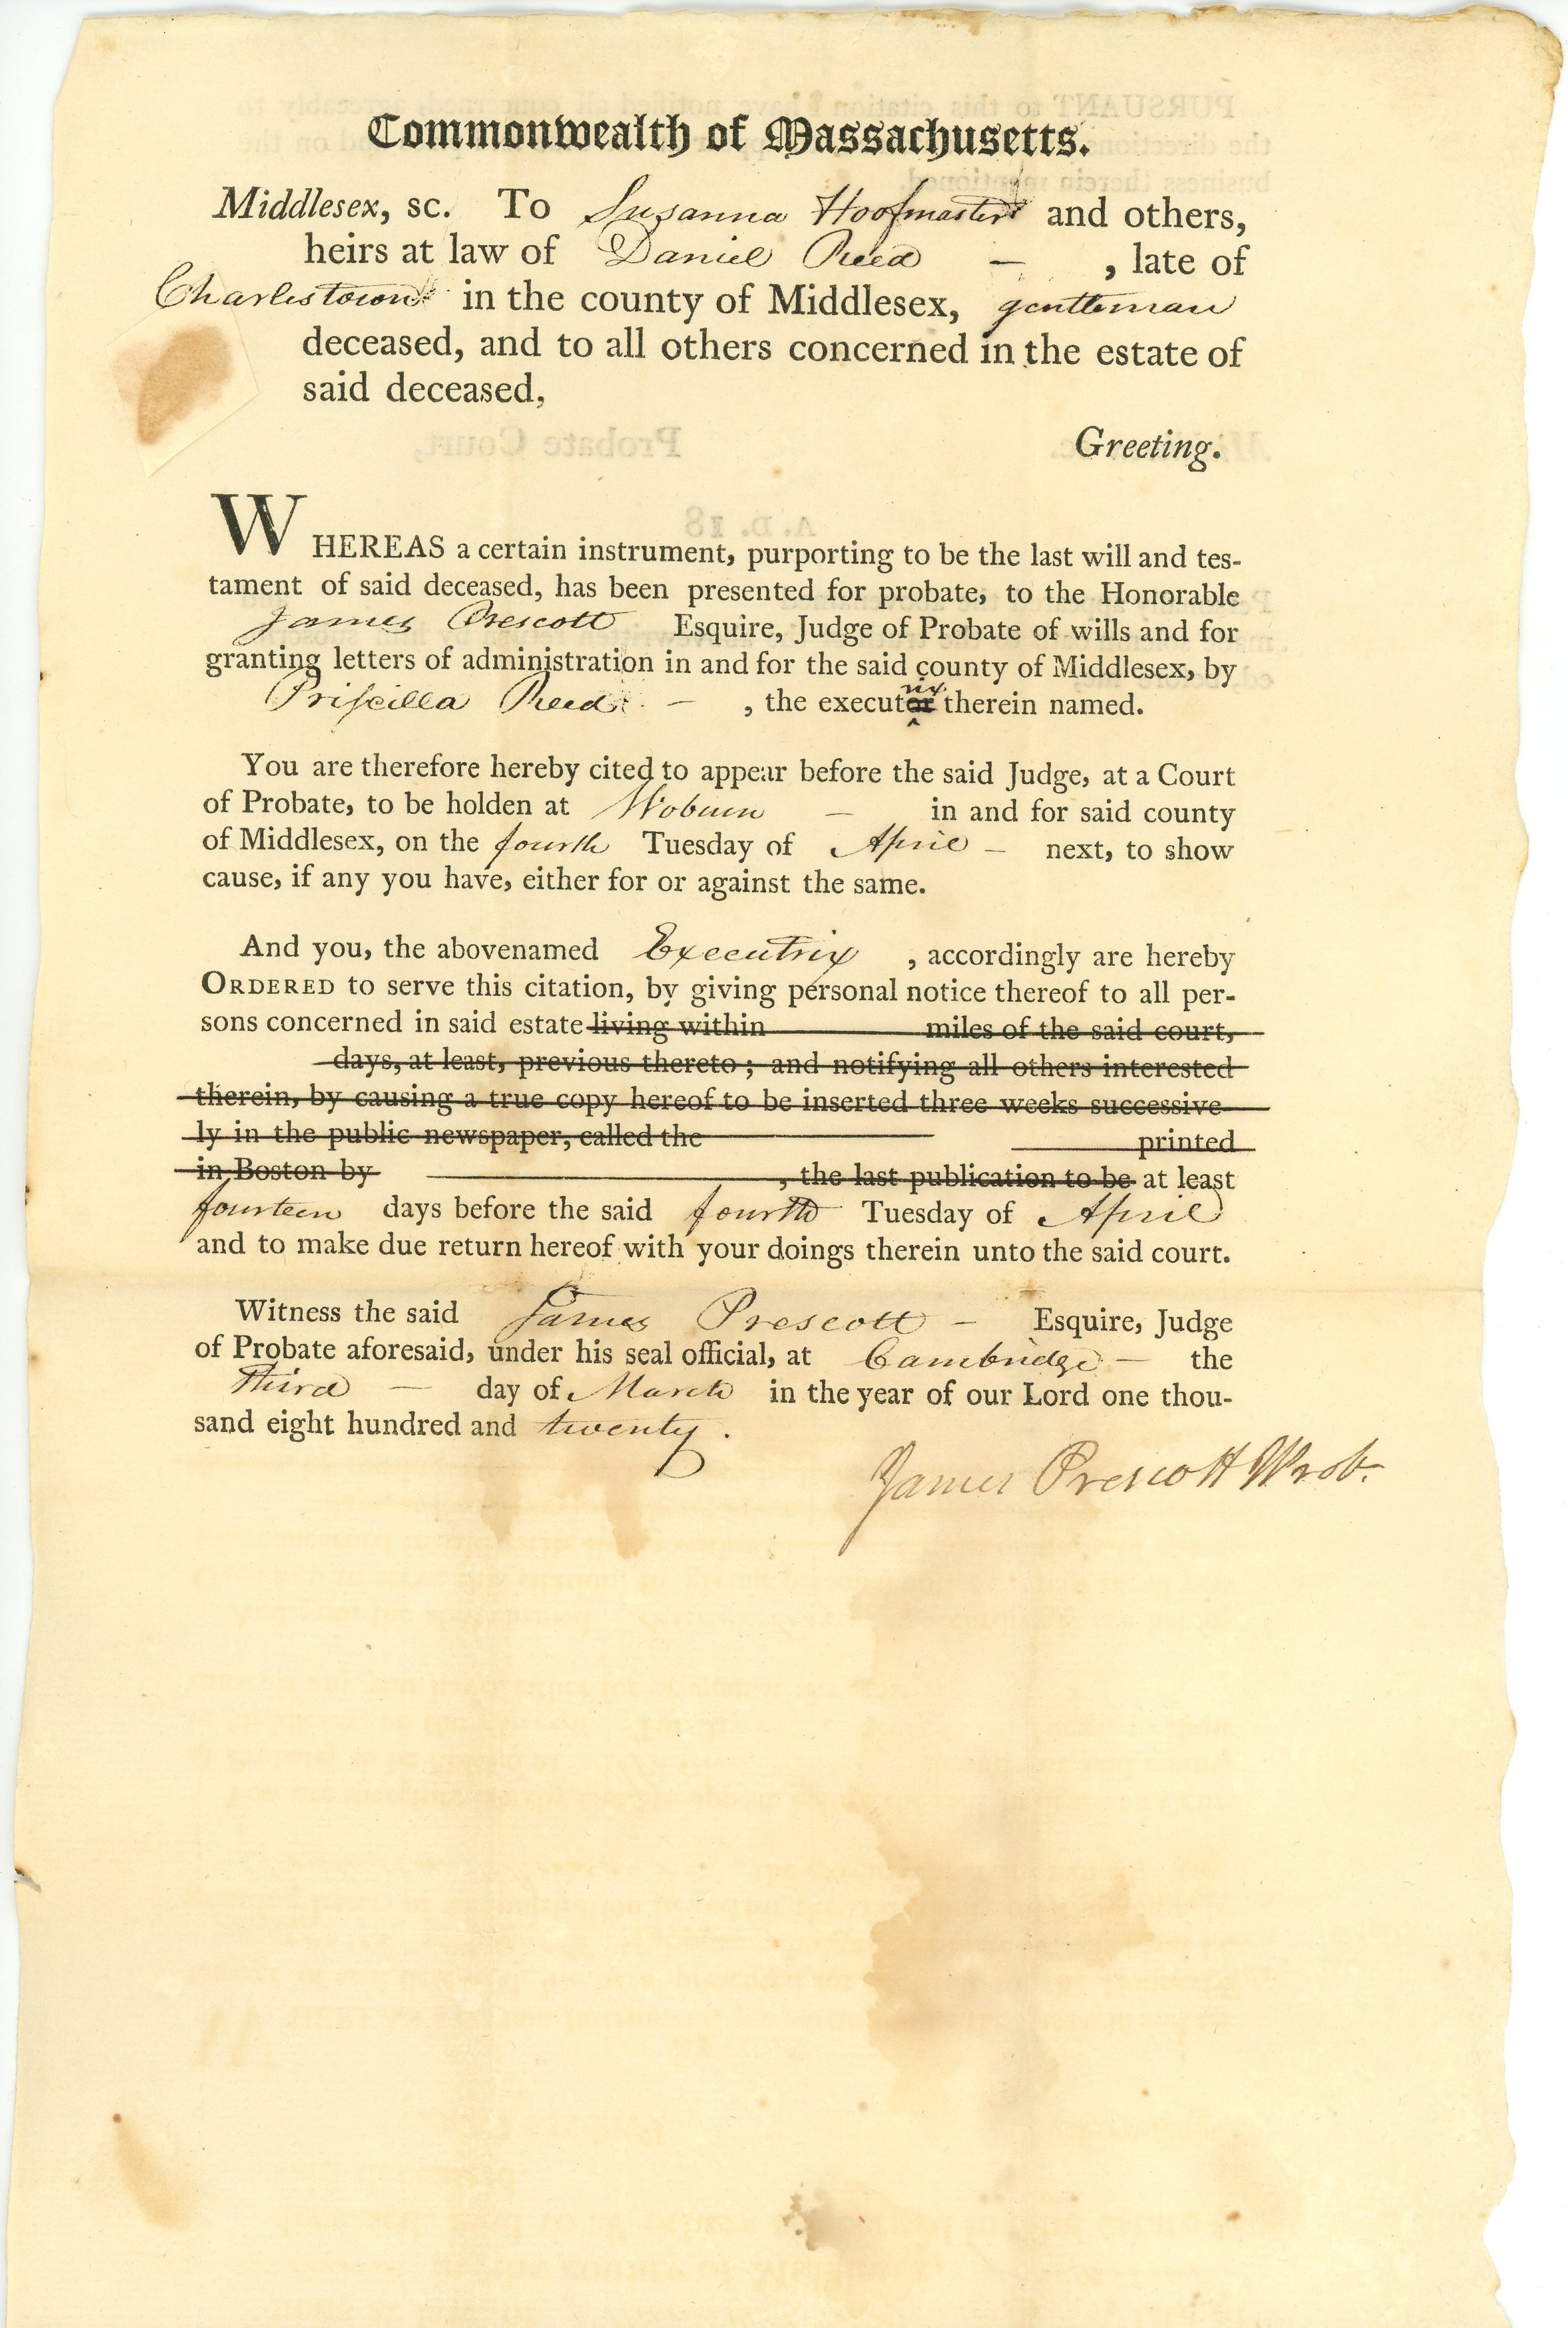 Commonwealth of Massachusetts.
Middlesex, sc. To Susanna Hoofmaster and others,
heirs at law of Daniel Reed — , late of
Charlestown in the county of Middlesex, gentleman
deceased, and to all others concerned in the estate of
said deceased,
Greeting.
WHEREAS a certain instrument, purporting to be the last will and tes-
tament of said deceased, has been presented for probate, to the Honorable
James Prescott Esquire, Judge of Probate of wills and for
granting letters of administration in and for the said county of Middlesex, by
Priscilla Reed — , the executrix therein named.
You are therefore hereby cited to appear before the said Judge, at a Court
of Probate, to be holden at Woburn — in and for said county
of Middlesex, on the fourth Tuesday of April — next, to show
cause, if any you have, either for or against the same.
And you, the abovenamed Executrix , accordingly are hereby
ORDERED to serve this citation, by giving personal notice thereof to all per-
sons concerned in said estate living within miles of the said court,
days, at least, previous thereto ; and notifying all others interested
therein, by causing a true copy hereof to be inserted three weeks successive
ly in the public newspaper, called the printed
in Boston by , the last publication to be at least
fourteen days before the said fourth Tuesday of April
and to make due return hereof with your doings therein unto the said court.
Witness the said James Prescott — Esquire, Judge
of Probate aforesaid, under his seal official, at Cambridge — the
third — day of March in the year of our Lord one thou-
sand eight hundred and twenty .
James Prescott